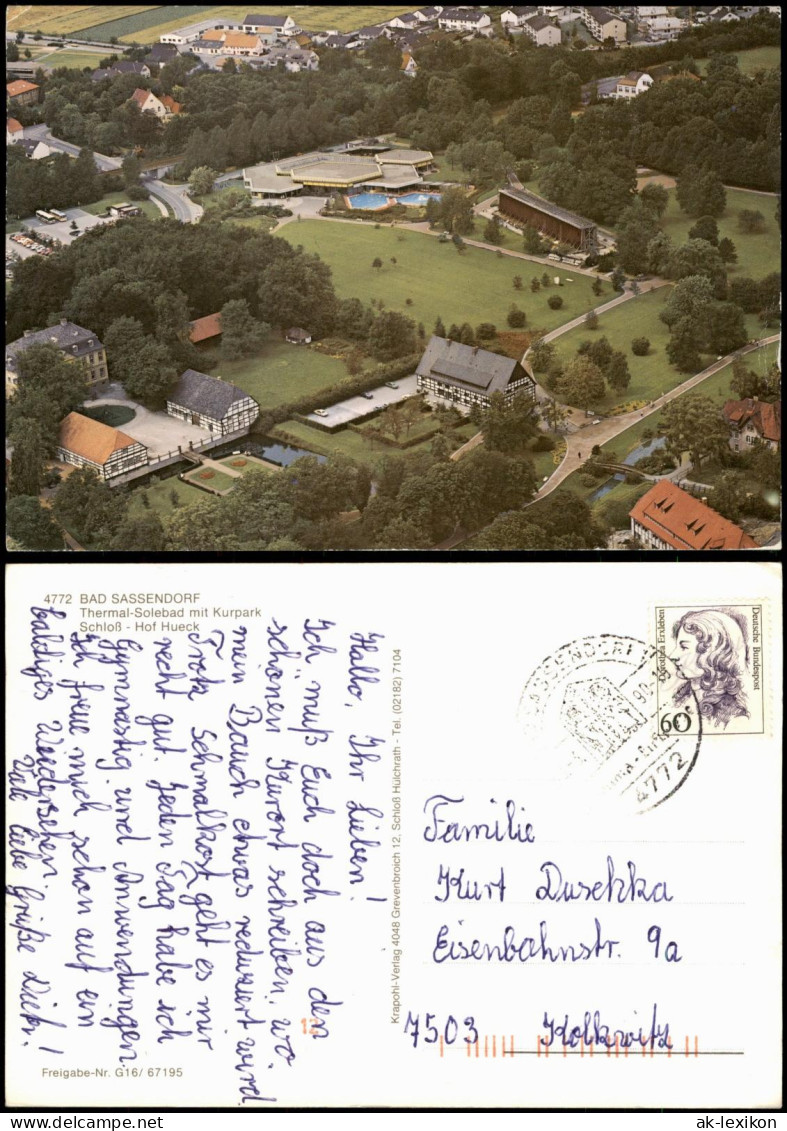 4772 BAD SASSENDORF
Thermal-Solebad mit Kurpark
Schloß - Hof Hueck
Hallo, Ihr Lieben!
Ich muß Euch doch aus den
schönen Kurort schreiben, wo
mein Bauch etwas reduziert wird.
Trotz Schmalkost geht es mir
recht gut. Jeden Tag habe ich
Gymnastig und Anwendungen.
Ich freue mich schon auf ein
baldiges Wiedersehen.
Viele liebe Grüße
Freigabe-Nr. G16/ 67195
Krapohl-Verlag 4048 Grevenbroich 12, Schloß Hülchrath - Tel. (02182) 7104
Dorothea Erxleben
Deutsche Bundespost
60
SASSENDORF
4772
Familie
Kurt Duschka
Eisenbahnstr. 9a
7503 Kolkwitz
© ak-lexikon
ak-lexikon.de